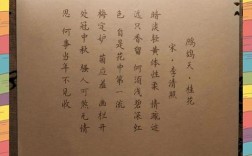 鹧鸪天·桂花
宋·李清照
暗淡轻黄体性柔 情疏迹
远只香留 何须浅碧深红
色 自是花中第一流
梅定妒 菊应羞 画栏开
处冠中秋 骚人可煞无情
思 何事当年不见收